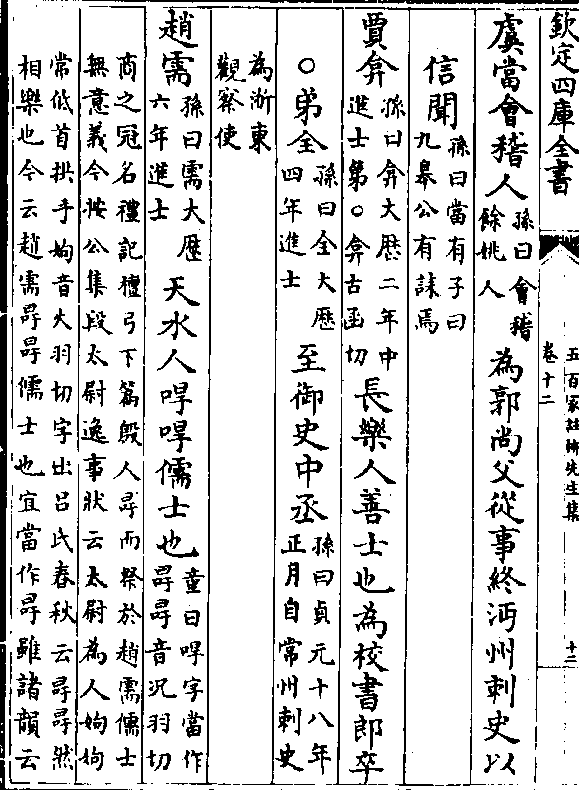 欽定四庫全書
五百家註柳先生集
卷十二
十二
虞當會稽人孫曰會稽餘姚人為郭尚父從事終沔州刺史以
信聞孫曰當有子曰九皋公有誄焉
賈弇孫曰弇大厯二年中進士第○弇古函切長樂人善士也為校書郎卒
○弟全孫曰全大厯四年進士至御史中丞孫曰貞元十八年正月自常州刺史
為浙東觀察使
趙需孫曰需大厯六年進士天水人哻哻儒士也童曰哻字當作冔冔音況羽切
商之冠名禮記檀弓下篇殷人冔而祭於趙需儒士
無意義今按公集段太尉逸事狀云太尉為人姁姁
常低首拱手姁音火羽切字出呂氏春秋云冔冔然
相樂也今云趙需冔冔儒士也宜當作冔雖諸韻云